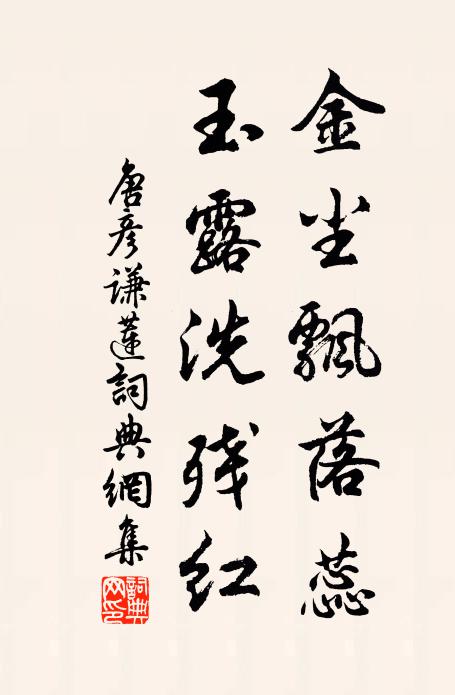 金尘飘落蕊
玉露洗残红
唐彦谦莲詞典網集
詞典网印